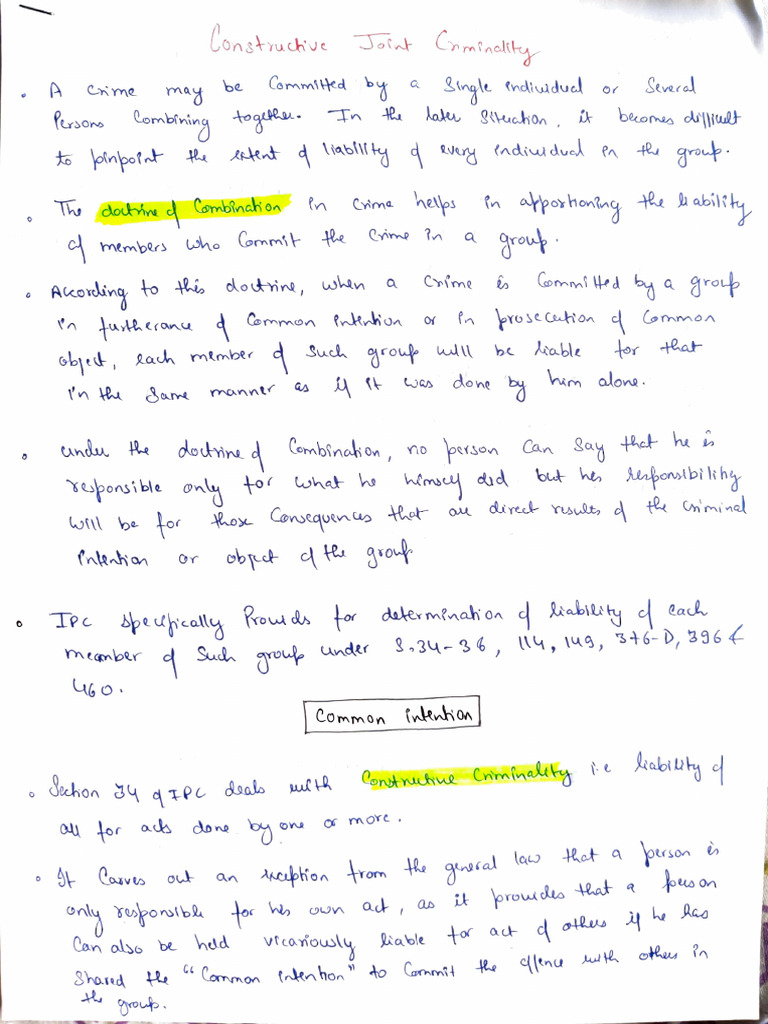 Constructive Joint Criminality
• A crime may be committed by a single individual or several
Persons combining together. In the later situation, it becomes difficult
to pinpoint the extent of liability of every individual in the group.
• The doctrine of Combination in crime helps in apportioning the liability
of members who commit the crime in a group.
• According to this doctrine, when a crime is committed by a group
in furtherance of common intention or in prosecution of common
object, each member of such group will be liable for that
in the same manner as if it was done by him alone.
• under the doctrine of Combination, no person can say that he is
responsible only for what he himself did but his responsibility
will be for those consequences that are direct results of the criminal
intention or object of the group
• IPC specifically Provids for determination of liability of each
member of such group under S.34-36, 114, 149, 376-D, 396 &
460.
Common intention
• Section 34 of IPC deals with Constructive Criminality i.e liability of
all for acts done by one or more.
• It carves out an exception from the general law that a person is
only responsible for his own act, as it provides that a person
can also be held vicariously liable for act of others if he has
shared the "Common intention" to commit the offence with others in
the group.